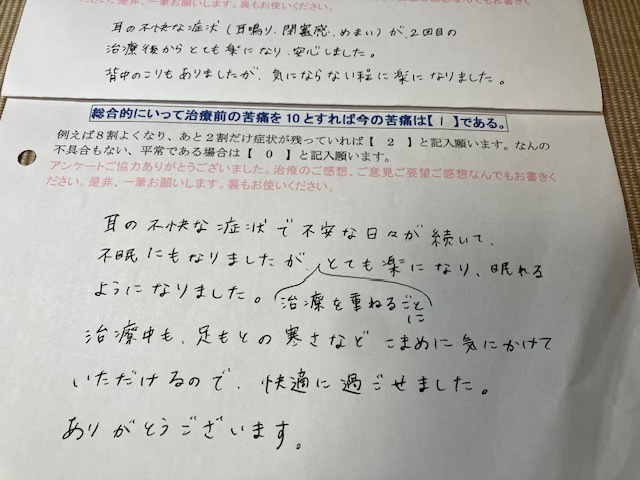 是非、一筆お願いします。裏もお使いください。
耳の不快な症状(耳鳴り、閉塞感、めまい)が、2回目の
治療後からとても楽になり、安心しました。
背中のこりもありましたが、気にならない程に楽になりました。
総合的にいって治療前の苦痛を10とすれば今の苦痛は【 1 】である。
例えば8割よくなり、あと2割だけ症状が残っていれば【 2 】と記入願います。なんの
不具合もない、平常である場合は【 0 】と記入願います。
アンケートご協力ありがとうございました。治療のご感想、ご意見ご要望ご感想なんでもお書きく
ださい。是非、一筆お願いします。裏もお使いください。
耳の不快な症状で不安な日々が続いて、
不眠にもなりましたが、とても楽になり、眠れる
ようになりました。治療を重ねるごとに
治療中も、足もとの寒さなどこまめに気にかけて
いただけるので、快適に過ごせました。
ありがとうございます。